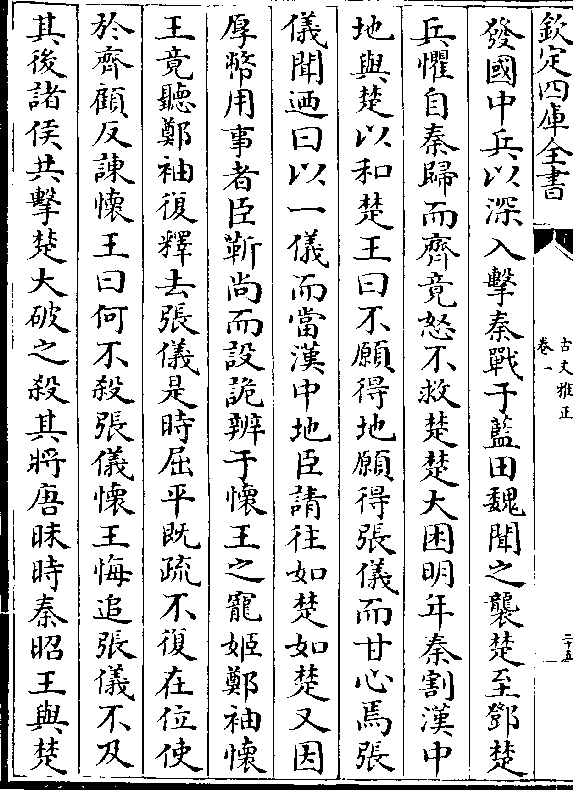 欽定四庫全書
古文雅正
卷一
二十五
發國中兵以深入擊秦戰于藍田魏聞之襲楚至鄧楚
兵懼自秦歸而齊竟怒不救楚楚大困明年秦割漢中
地與楚以和楚王曰不願得地願得張儀而甘心焉張
儀聞迺曰以一儀而當漢中地臣請往如楚如楚又因
厚幣用事者臣靳尚而設詭辨于懷王之寵姬鄭袖懷
王竟聽鄭袖復釋去張儀是時屈平既疏不復在位使
於齊顧反諫懷王曰何不殺張儀懷王悔追張儀不及
其後諸侯共擊楚大破之殺其將唐昧時秦昭王與楚